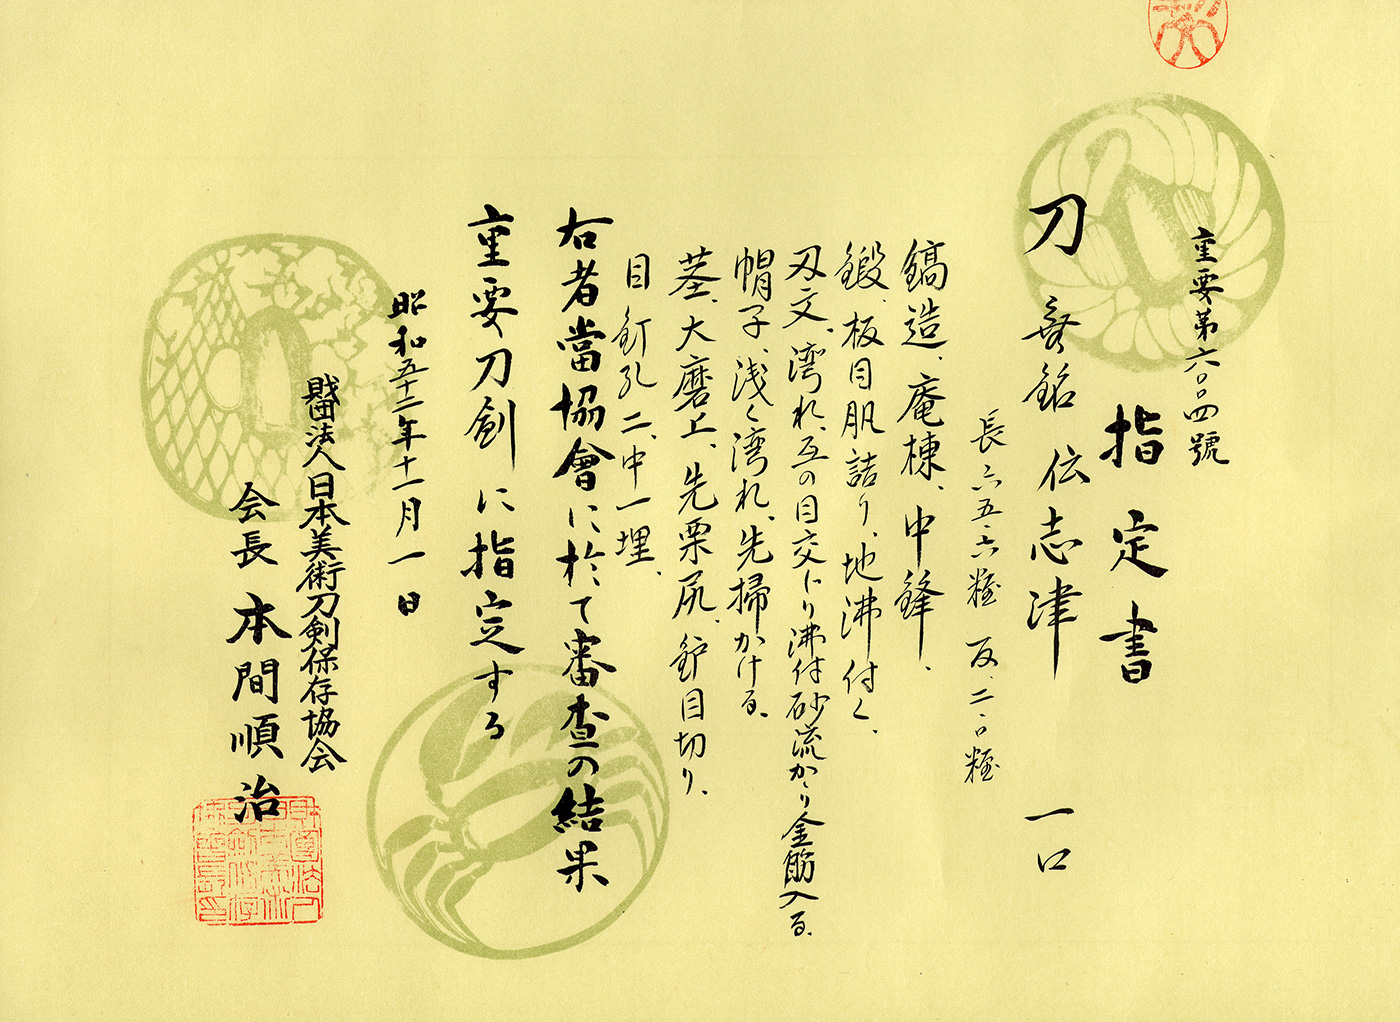 重要第六〇〇四號
指定書
刀 無銘 伝志津 一口
長 六五・六糎 反 二・〇糎
鎬造、庵棟、中鋒、
鍛、板目肌詰り、地沸付く、
刃文、湾れ、互の目交じり沸付砂流かゝり金筋入る、
帽子、浅く湾れ、先掃かける、
茎、大磨上、先栗尻、鑢目切り、
目釘孔二、中一埋、
右者當協會に於て審査の結果
重要刀剣に指定する
昭和五十二年十一月一日
財団法人日本美術刀剣保存協会
会長 本間順治